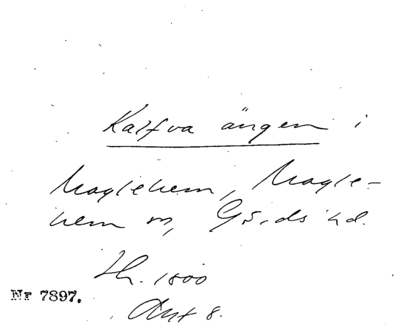 Kalfva ängen i
Maglehem, Magle-
hem sn, Gärds hd.
Lh. 1800
Nr 7897.
Akt 8.